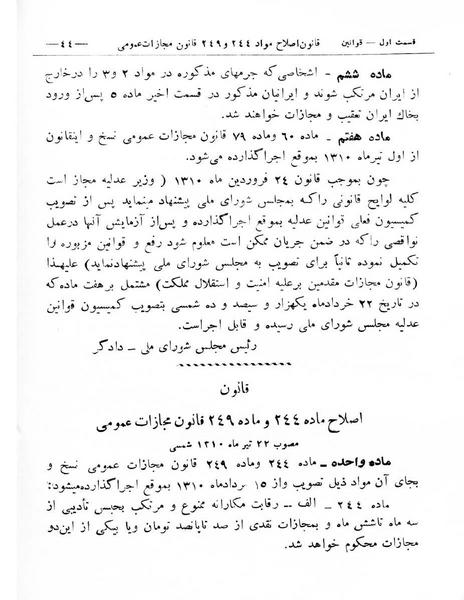 قسمت اول — قوانین قانون اصلاح مواد ۲٤٤ و ۲٤۹ قانون مجازات عمومی —٤٤—
ماده ششم - اشخاصی که جرمهای مذکوره در مواد ۲ و ۳ را در خارج
از ایران مرتکب شوند و ایرانیان مذکور در قسمت اخیر ماده ٥ پس از ورود
بخاک ایران تعقیب و مجازات خواهند شد.
ماده هفتم - ماده ٦۰ و ماده ۷۹ قانون مجازات عمومی نسخ و اینقانون
از اول تیر ماه ۱۳۱۰ بموقع اجرا گذارده می‌شود.
چون بموجب قانون ۲٤ فروردین ماه ۱۳۱۰ ( وزیر عدلیه مجاز است
کلیه لوایح قانونی را که بمجلس شورای ملی پیشنهاد مینماید پس از تصویب
کمیسیون فعلی قوانین عدلیه بموقع اجرا گذارده و پس از آزمایش آنها در عمل
نواقصی را که در ضمن جریان ممکن است معلوم شود رفع و قوانین مزبوره را
تکمیل نموده ثانیاً برای تصویب به مجلس شورای ملی پیشنهاد نماید) علیهذا
(قانون مجازات مقدمین بر علیه امنیت و استقلال مملکت) مشتمل بر هفت ماده که
در تاریخ ۲۲ خرداد ماه یکهزار و سیصد و ده شمسی بتصویب کمیسیون قوانین
عدلیه مجلس شورای ملی رسیده و قابل اجراست.
رئیس مجلس شورای ملی - دادگر
قانون
اصلاح ماده ۲٤٤ و ماده ۲٤۹ قانون مجازات عمومی
مصوب ۲۲ تیر ماه ۱۳۱۰ شمسی
ماده واحده - ماده ۲٤٤ و ماده ۲٤۹ قانون مجازات عمومی نسخ و
بجای آن مواد ذیل تصویب و از ۱٥ مرداد ماه ۱۳۱۰ بموقع اجرا گذارده میشود:
ماده ۲٤٤ - الف - رقابت مکارانه ممنوع و مرتکب بحبس تأدیبی از
سه ماه تا شش ماه و بمجازات نقدی از صد تا پانصد تومان و یا بیکی از این دو
مجازات محکوم خواهد شد.